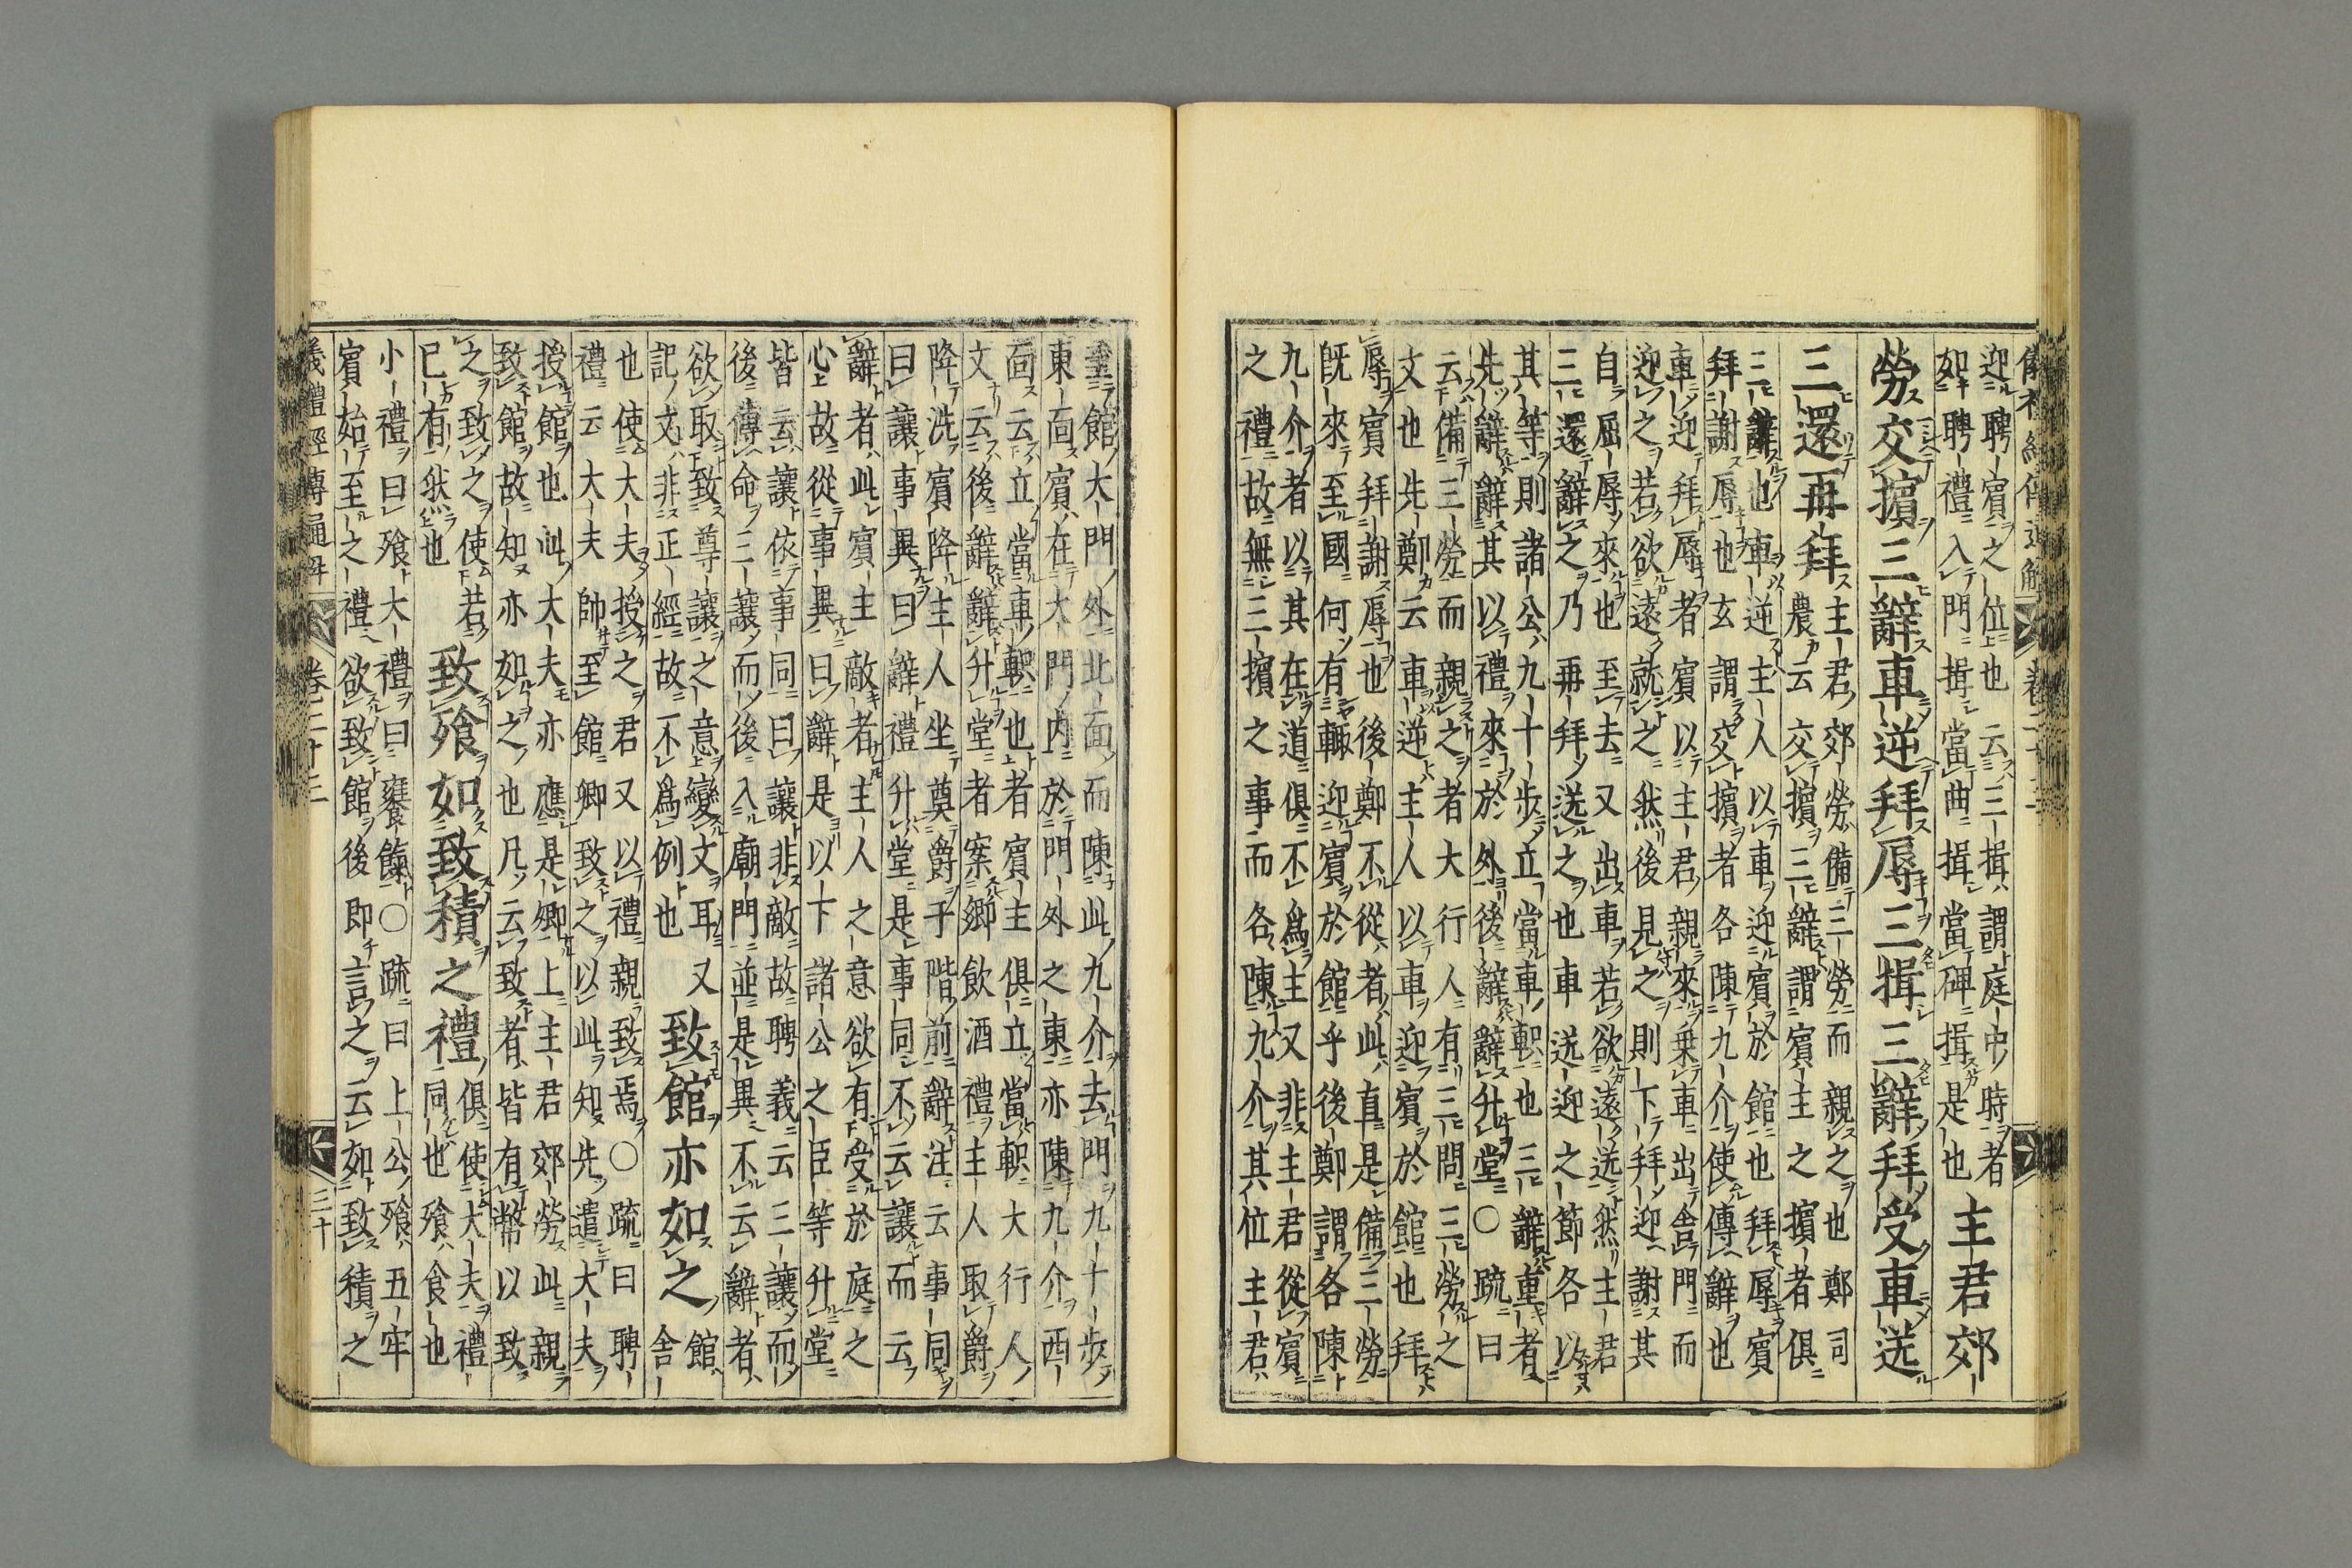 儀禮經傳通解 卷二十三
迎聘賓之位也云三揖謂庭中時者
如聘禮入門揖當曲揖當碑揖是也
主君郊
勞交擯三辭車逆拜辱三揖三辭拜受車送
三還再拜
主君郊勞備三勞而親之也鄭司
農云交擯三辭謂賓主之擯者俱
三辭也車逆主人以車迎賓於館也拜辱賓
拜謝辱也玄謂交擯者各陳九介使傳辭也
車迎拜辱者賓以主君親來乗車出舍門而
迎之若欲遠就之然後見之則下拜迎謝其
自屈辱來也至去又出車若欲遠送然主君
三還辭之乃再拜送之也車送迎之節各以
其等則諸公九十步立當車軹也三辭重者
先辭辭其以禮來於外後辭辭升堂○疏曰
云備三勞而親之者大行人有三問三勞之
文也先鄭云車逆主人以車迎賓於館也拜
辱賓拜謝辱也後鄭不從者此直是備三勞
旣來至國何有輙迎賓於館乎後鄭謂各陳
九介者以其在道俱不爲主又非主君從賓
之禮故無三擯之事而各陳九介其位主君
至館大門外北面而陳此九介去門九十步
東面賓在大門内於門外之東亦陳九介西
面云立當車軹也者賓主俱立當軹大行人
文云後辭辭升堂者案鄉飲酒禮主人取爵
降洗賓降主人坐奠爵于階前辭注云事同
曰讓事異曰辭禮升堂是事同不云讓而云
辭者此賓主敵者主人之意欲有受於庭之
心故從事異曰辭是以下諸公之臣等升堂
皆云讓依事同曰讓非敵故聘義云三讓而
後傳命三讓而後入廟門並是異不云辭者
欲取致尊讓之意變文耳又
記文非正經故不爲例也
致館亦如之
館
舍
也使大夫授之君又以禮親致焉○疏曰聘
禮云大夫帥至館卿致之以此知先遣大夫
授館也此大夫亦應是卿上主君郊勞此親
致館故知亦如之也凡云致者皆有幣以致
之致之使若
已有然也
致飱如致積之禮
俱使大夫禮
同也飱食也
小禮曰飱大禮曰饔餼○疏曰上公飱五牢
賓始至之禮欲致館後即言之云如致積之
儀禮經傳通解 卷二十三 三十